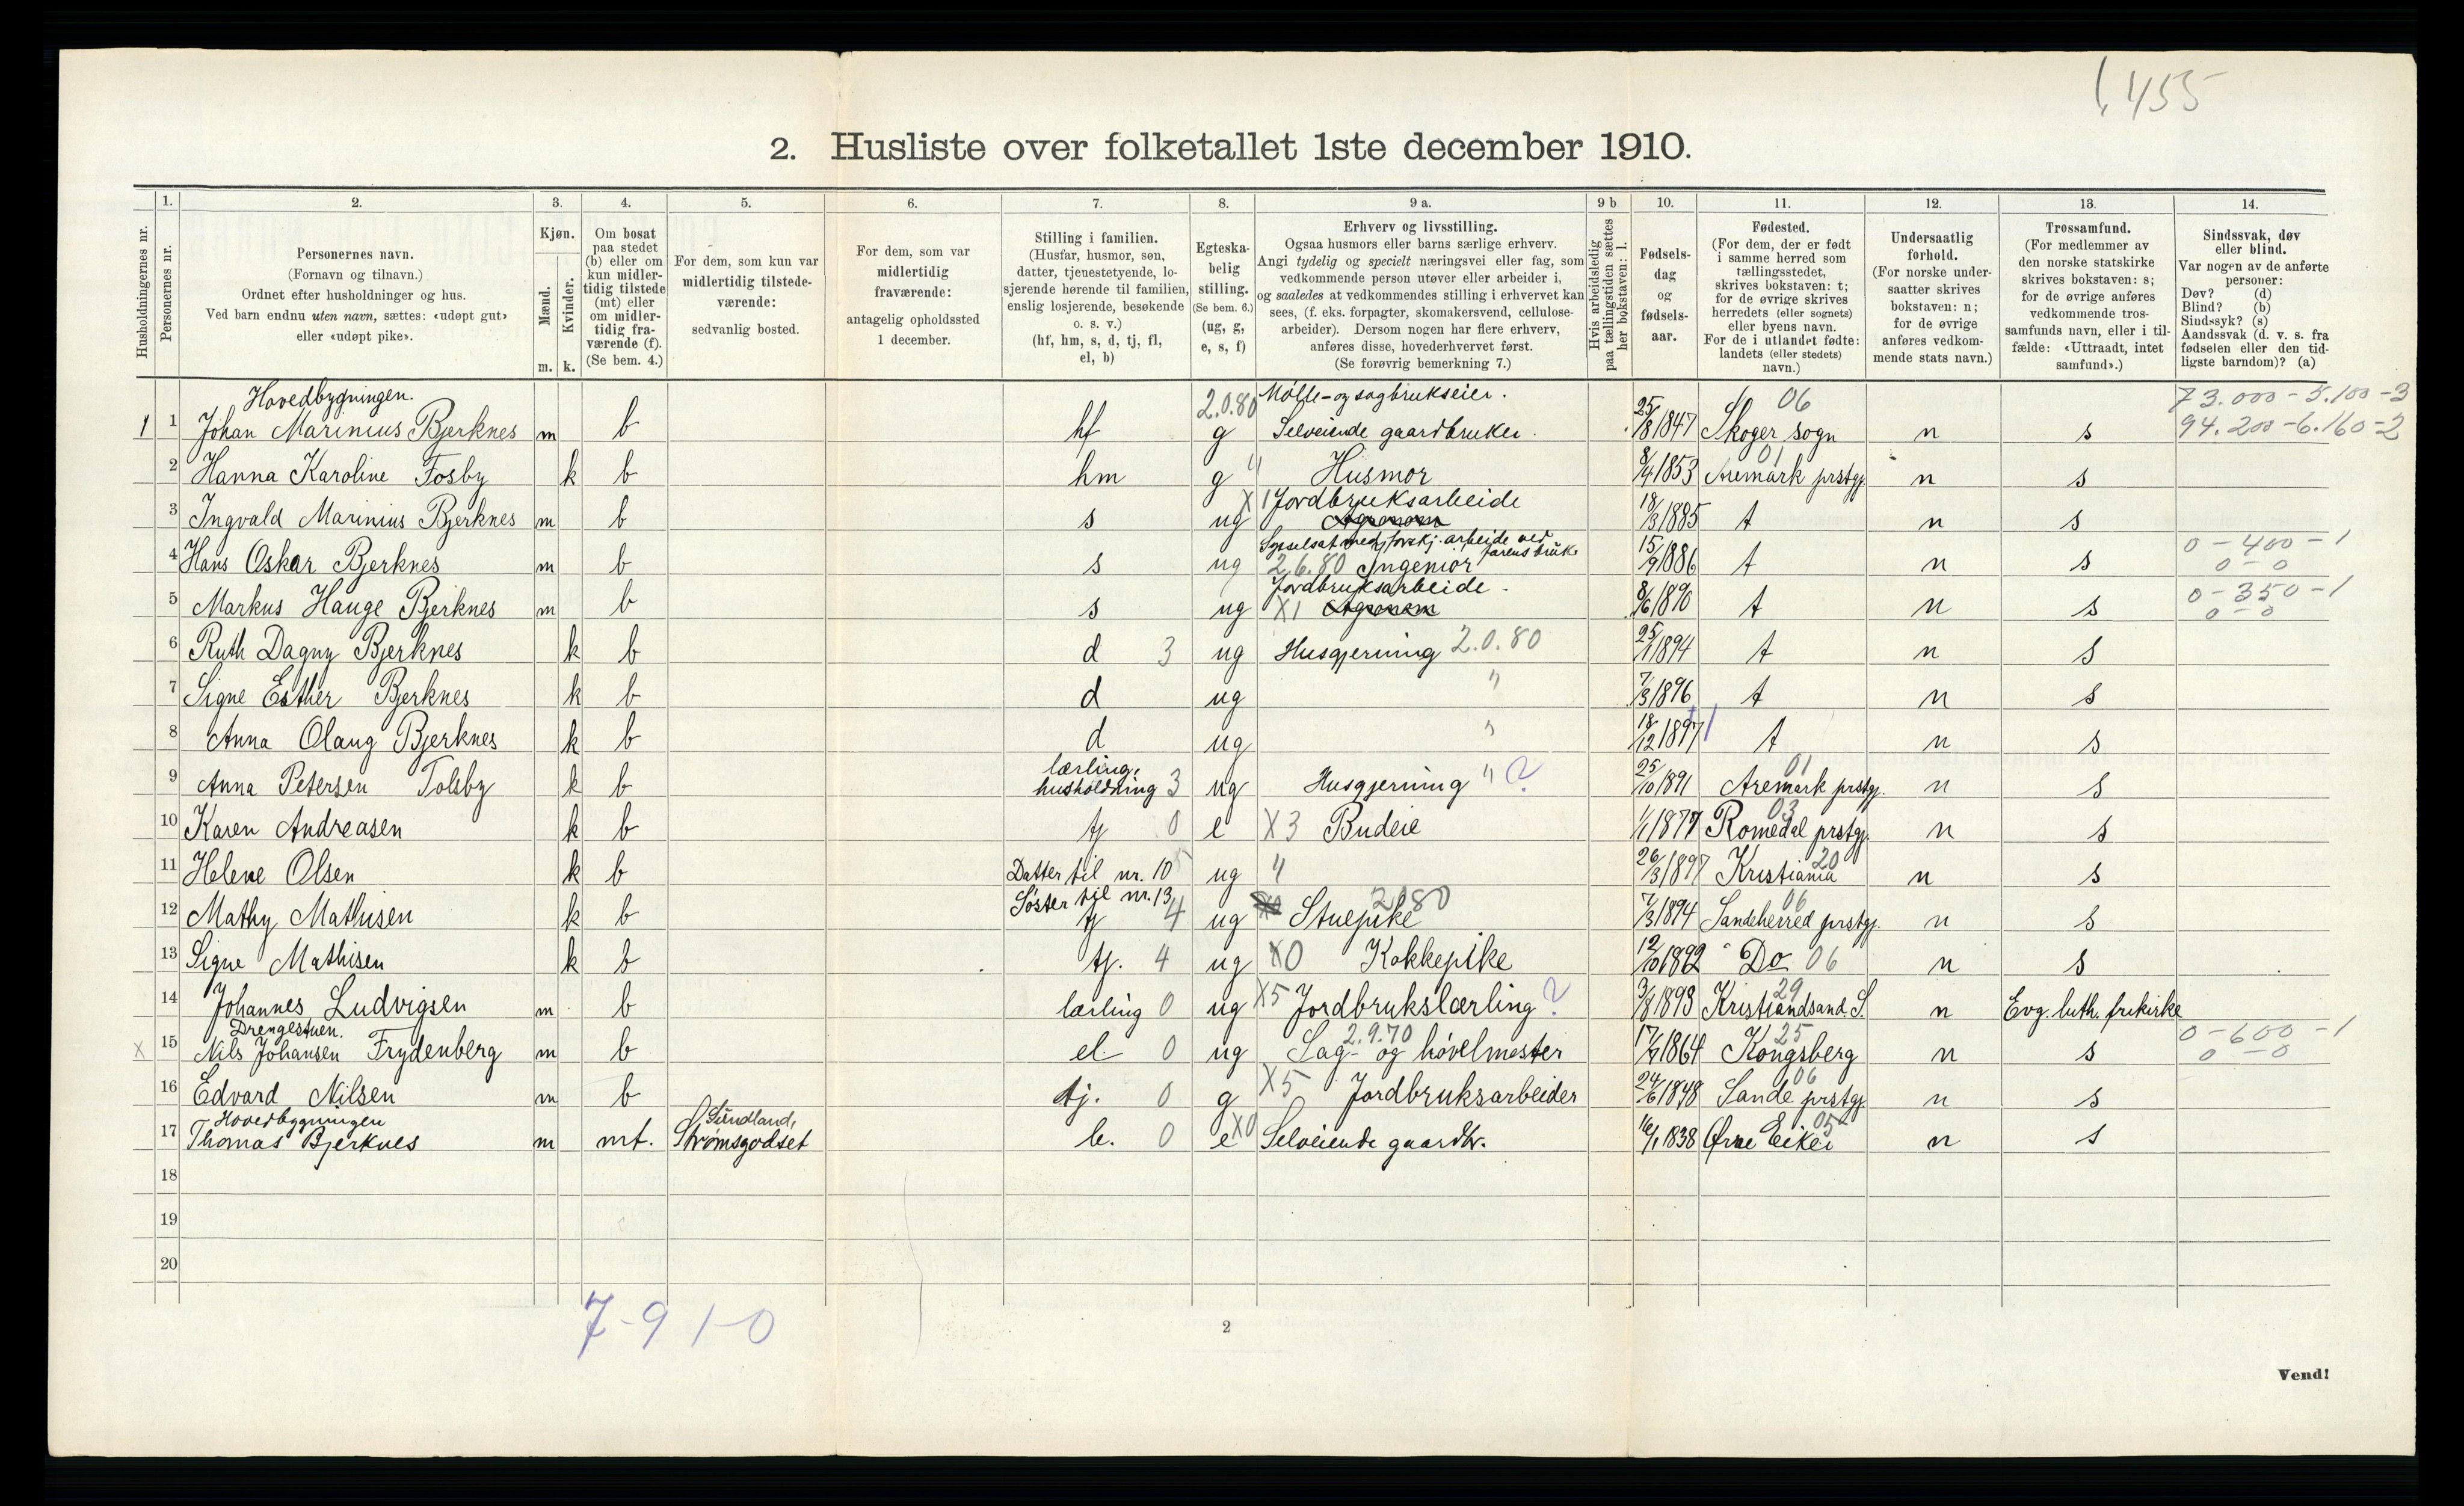 1,455
2. Husliste over folketallet 1ste december 1910.
Husholdningernes nr.
1.
Personernes nr.
2.
Personernes navn.
(Fornavn og tilnavn.)
Ordnet efter husholdninger og hus.
Ved barn endnu uten navn, sættes: «udøpt gut»
eller «udøpt pike».
3.
Kjøn.
Mænd.
Kvinder.
m. k.
4.
Om bosat
paa stedet
(b) eller om
kun midler-
tidig tilstede
(mt) eller
om midler-
tidig fra-
værende (f).
(Se bem. 4.)
5.
For dem, som kun var
midlertidig tilstede-
værende:
sedvanlig bosted.
6.
For dem, som var
midlertidig
fraværende:
antagelig opholdssted
1 december.
7.
Stilling i familien.
(Husfar, husmor, søn,
datter, tjenestetyende, lo-
sjerende hørende til familien,
enslig losjerende, besøkende
o. s. v.)
(hf, hm, s, d, tj, fl,
el, b)
8.
Egteska-
belig
stilling.
(Se bem. 6.)
(ug, g,
e, s, f)
9 a.
Erhverv og livsstilling.
Ogsaa husmors eller barns særlige erhverv.
Angi tydelig og specielt næringsvei eller fag, som
vedkommende person utøver eller arbeider i,
og saaledes at vedkommendes stilling i erhvervet kan
sees, (f. eks. forpagter, skomakersvend, cellulose-
arbeider). Dersom nogen har flere erhverv,
anføres disse, hovederhvervet først.
(Se forøvrig bemerkning 7.)
9 b
Hvis arbeidsledig
paa tællingstiden sættes
her bokstaven: l.
10.
Fødsels-
dag
og
fødsels-
aar.
11.
Fødested.
(For dem, der er født
i samme herred som
tællingsstedet,
skrives bokstaven: t;
for de øvrige skrives
herredets (eller sognets)
eller byens navn.
For de i utlandet fødte:
landets (eller stedets)
navn.)
12.
Undersaatlig
forhold.
(For norske under-
saatter skrives
bokstaven: n;
for de øvrige
anføres vedkom-
mende stats navn.)
13.
Trossamfund.
(For medlemmer av
den norske statskirke
skrives bokstaven: s;
for de øvrige anføres
vedkommende tros-
samfunds navn, eller i til-
fælde: «Uttraadt, intet
samfund».)
14.
Sindssvak, døv
eller blind.
Var nogen av de anførte
personer:
Døv? (d)
Blind? (b)
Sindssyk? (s)
Aandssvak (d. v. s. fra
fødselen eller den tid-
ligste barndom)? (a)
Hovedbygningen. 2.0.80 Mølle- og sagbrukseier. 06 73.000 - 5.100 - 3
1 1 Johan Marinius Bjerknes m b hf g Selveiende gaardbruker. 25/8 1847 Skoger sogn n s 94.200 - 6.160 - 2
2 Hanna Karoline Fosby k b hm g " Husmor 8/4 1853 01 Aremark prstgj. n s
X1 Jordbruksarbeide
3 Ingvald Marinius Bjerknes m b s ug Agronom 18/3 1885 t n s
Sysselsat med forskj. arbeide ved farens bruk 0 - 400 - 1
4 Hans Oskar Bjerknes m b s ug 2.6.80 Ingeniør 15/9 1886 t n s 0 - 0
Jordbruksarbeide. 0 - 350 - 1
5 Markus Hauge Bjerknes m b s ug X1 Agronom 8/6 1890 t n s 0 - 0
6 Ruth Dagny Bjerknes k b d 3 ug Husgjerning 2.0.80 25/1 1894 t n s
7 Signe Esther Bjerknes k b d ug " 7/3 1896 t n s
8 Anna Olaug Bjerknes k b d ug " 18/12 1897 t n s
lærling, 01
9 Anna Petersen Tolsby k b husholdning 3 ug Husgjerning " ? 25/10 1891 Aremark prstgj. n s
10 Karen Andreasen k b tj 0 e X3 Budeie 1/1 1877 03 Romedal prstgj. n s
11 Helene Olsen k b Datter til nr. 10 5 ug " 26/3 1897 20 Kristiania n s
Søster til nr. 13, 2.0.80 06
12 Mathy Mathisen k b tj 4 ug Stuepike 7/3 1894 Sandeherred prstgj. n s
13 Signe Mathisen k b tj. 4 ug X0 Kokkepike 12/10 1892 Do 06 n s
14 Johannes Ludvigsen m b lærling 0 ug X5 Jordbrukslærling ? 3/8 1893 29 Kristiandsand. S. n Evg. luth. frikirke
Drengestuen. 2.9.70 25 0 - 600 - 1
X 15 Nils Johansen Frydenberg m b el. 0 ug Sag- og høvelmester 17/7 1864 Kongsberg n s 0 - 0
16 Edvard Nilsen m b tj. 0 g X5 Jordbruksarbeider 24/6 1848 06 Sande prstgj. n s
Hovedbygningen Sundland, 05
17 Thomas Bjerknes m mt. Strømsgodset b. 0 e X0 Selveiende gaardbr. 16/1 1838 Øvre Eiker n s
18
19
20
7-9 1-0
2
Vend!